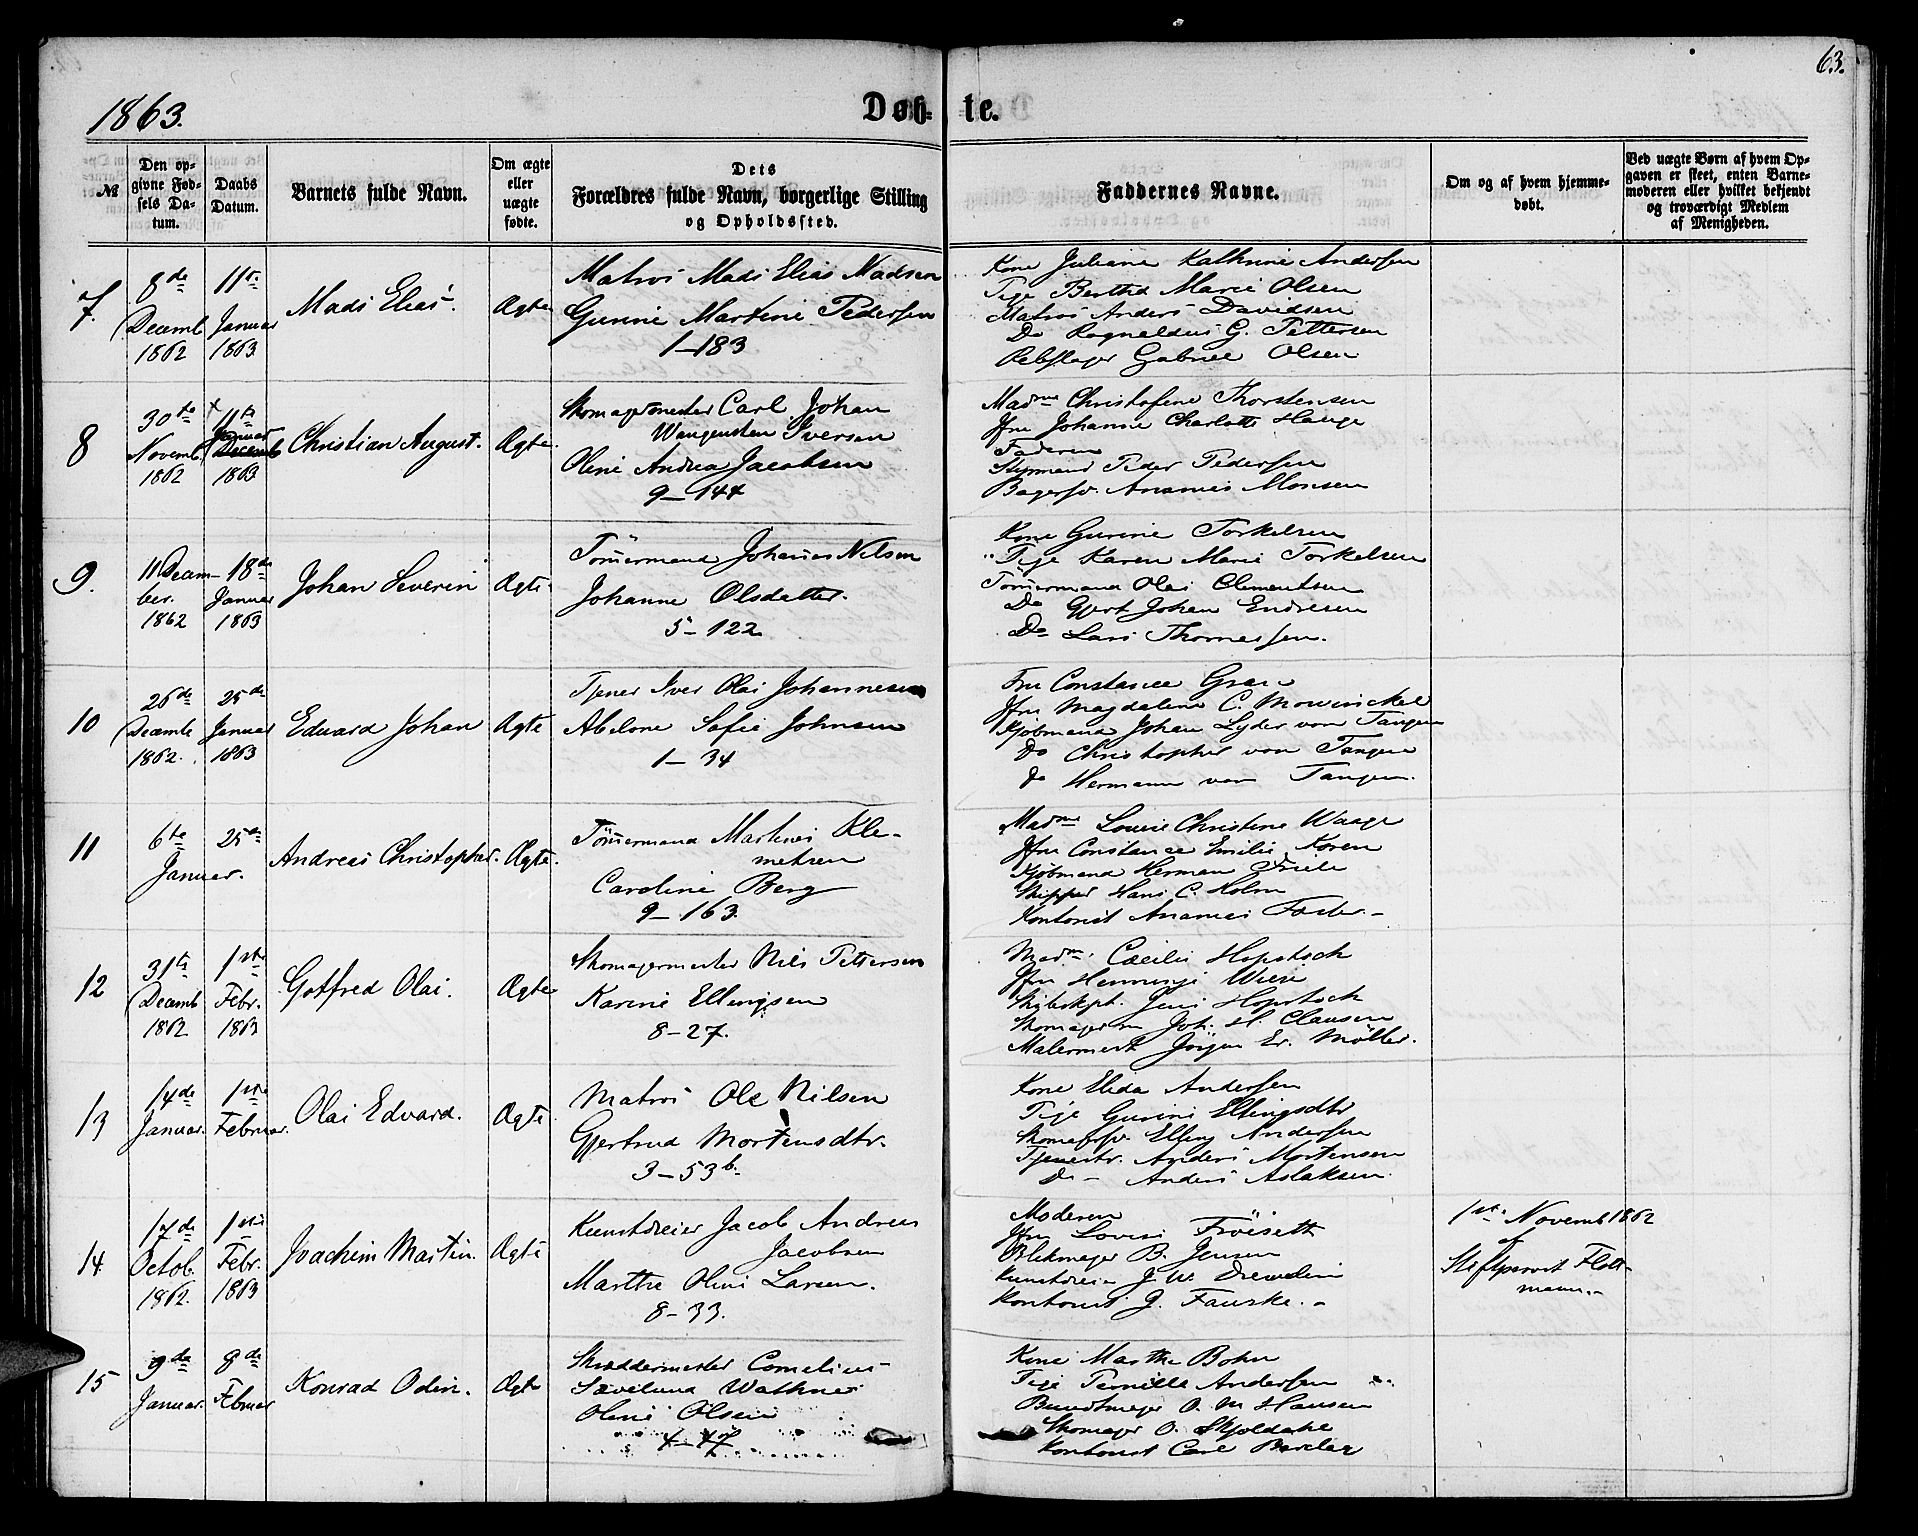 63.
1863.
Døb- te.
№
Den op-
givne Fød-
sels Da-
tum.
Daabs
Datum.
Barnets fulde Navn.
Om ægte
eller
uægte
fødte.
Dets
Forældres fulde Navn, borgerlige Stilling
og Opholdssted.
Faddernes Navne.
Om og af hvem hjemme-
døbt.
Ved uægte Børn af hvem Op-
gaven er skeet, enten Barne-
moderen eller hvilket bekjendt
og troværdigt Medlem
af Menigheden.
7.
8de
Decemb
1862
11te
Januar
1863
Mads Elias.
Ægte
Matros Mads Elias Madsen
Gurine Martine Pedersen
1-183
Kone Juliane Kathrine Andersen
Pige Bertha Marie Olsen
Matros Anders Davidsen
Do Ragnaldus G. Pettersen
Rebslager Gabriel Olsen
8
30te
Novemb.
1862
11te
Januar
Decemb
1863
Christian August.
Ægte.
Skomagermester Carl Johan
Wangensten Iversen
Oline Andrea Jacobsen
9-144
Madme Christofine Thorstensen
Jfru Johanne Charlotte Hauge
Faderen
Styrmand Peder Pedersen
Bagersv. Ananias Monsen
9.
11 Decem-
ber.
1862
18de
Januar
1863
Johan Severin
Ægte
Tömmermand Johannes Nilsen
Johanne Olsdatter.
5-122
Kone Gurine Torkelsen
Pige Karen Marie Torkelsen
Tömmermand Olai Clementsen
Do Gjert Johan Endresen
Do Lars Thomassen.
10
26de
Decemb
1862.
25de
Januar
1863
Edvard Johan
Ægte
Tjener Iver Olai Johannesen
Abelone Sofie Johnsen
1-34
Fru Constance Gran
Jfru Magdalene C. Mowinckel
Kjöbmand Johan Lyder von Tangen
Do Christopher von Tangen
do Hermann von Tangen.
11
6te
25de
Januar.
Andreas Christopher.
Ægte.
Tömmermand Martinus Kle-
metsen
Caroline Berg
9-163.
Madme Louise Christine Waage
Jfru Constance Emilie Koren
Kjöbmand Herman Friele
Skipper Hans C. Holm
Kontorist Ananias Foster.
12
31te
Decemb
1862
1ste
Febr.
1863
Gotfred Olai.
Ægte
Skomagermester Nils Pettersen
Karine Ellingsen
8-27.
Madm. Cæcilie Hopstock
Jfru Henninge Wiese
Skibskpt. Jens Hopstock
Skomagerm Joh. H. Clausen
Malermest Jörgen Er. Möller.
13
14de
Januar.
1ste
Februar.
Olai Edvard.
Ægte.
Matros Ole Nilsen
Gjertrud Mortensdtr.
3-53b.
Kone Elida Andersen
Pige Gurine Ellingsdtr
Skomagersv. Elling Andersen
Tjenestr. Anders Mortensen
Do - Anders Aslaksen.
14
17de
Octob.
1862.
1ste
Febr.
1863
Joachim Martin.
Ægte
Kunstdreier Jacob Andreas
Jacobsen
Marthe Oline Larsen.
8-33.
Moderen
Jfru Lovise Fröisett
Blikmager B. Jensen
Kunstdreier J. W.
Kontorist J. Fauske.
1ste Novemb 1862
af
Stiftsprovst Flott-
mann.
15
9de
Januar.
8de
Februar
Konrad Odin.
Ægte
Skræddermester Cornelius
Wathne
Oline Olsen
4-47
Kone Marthe Bohn
Pige Pernille Andersen
Bundtmager O. M. Hansen
Skomager O. Skjoldahl
Kontorist Carl Barclay